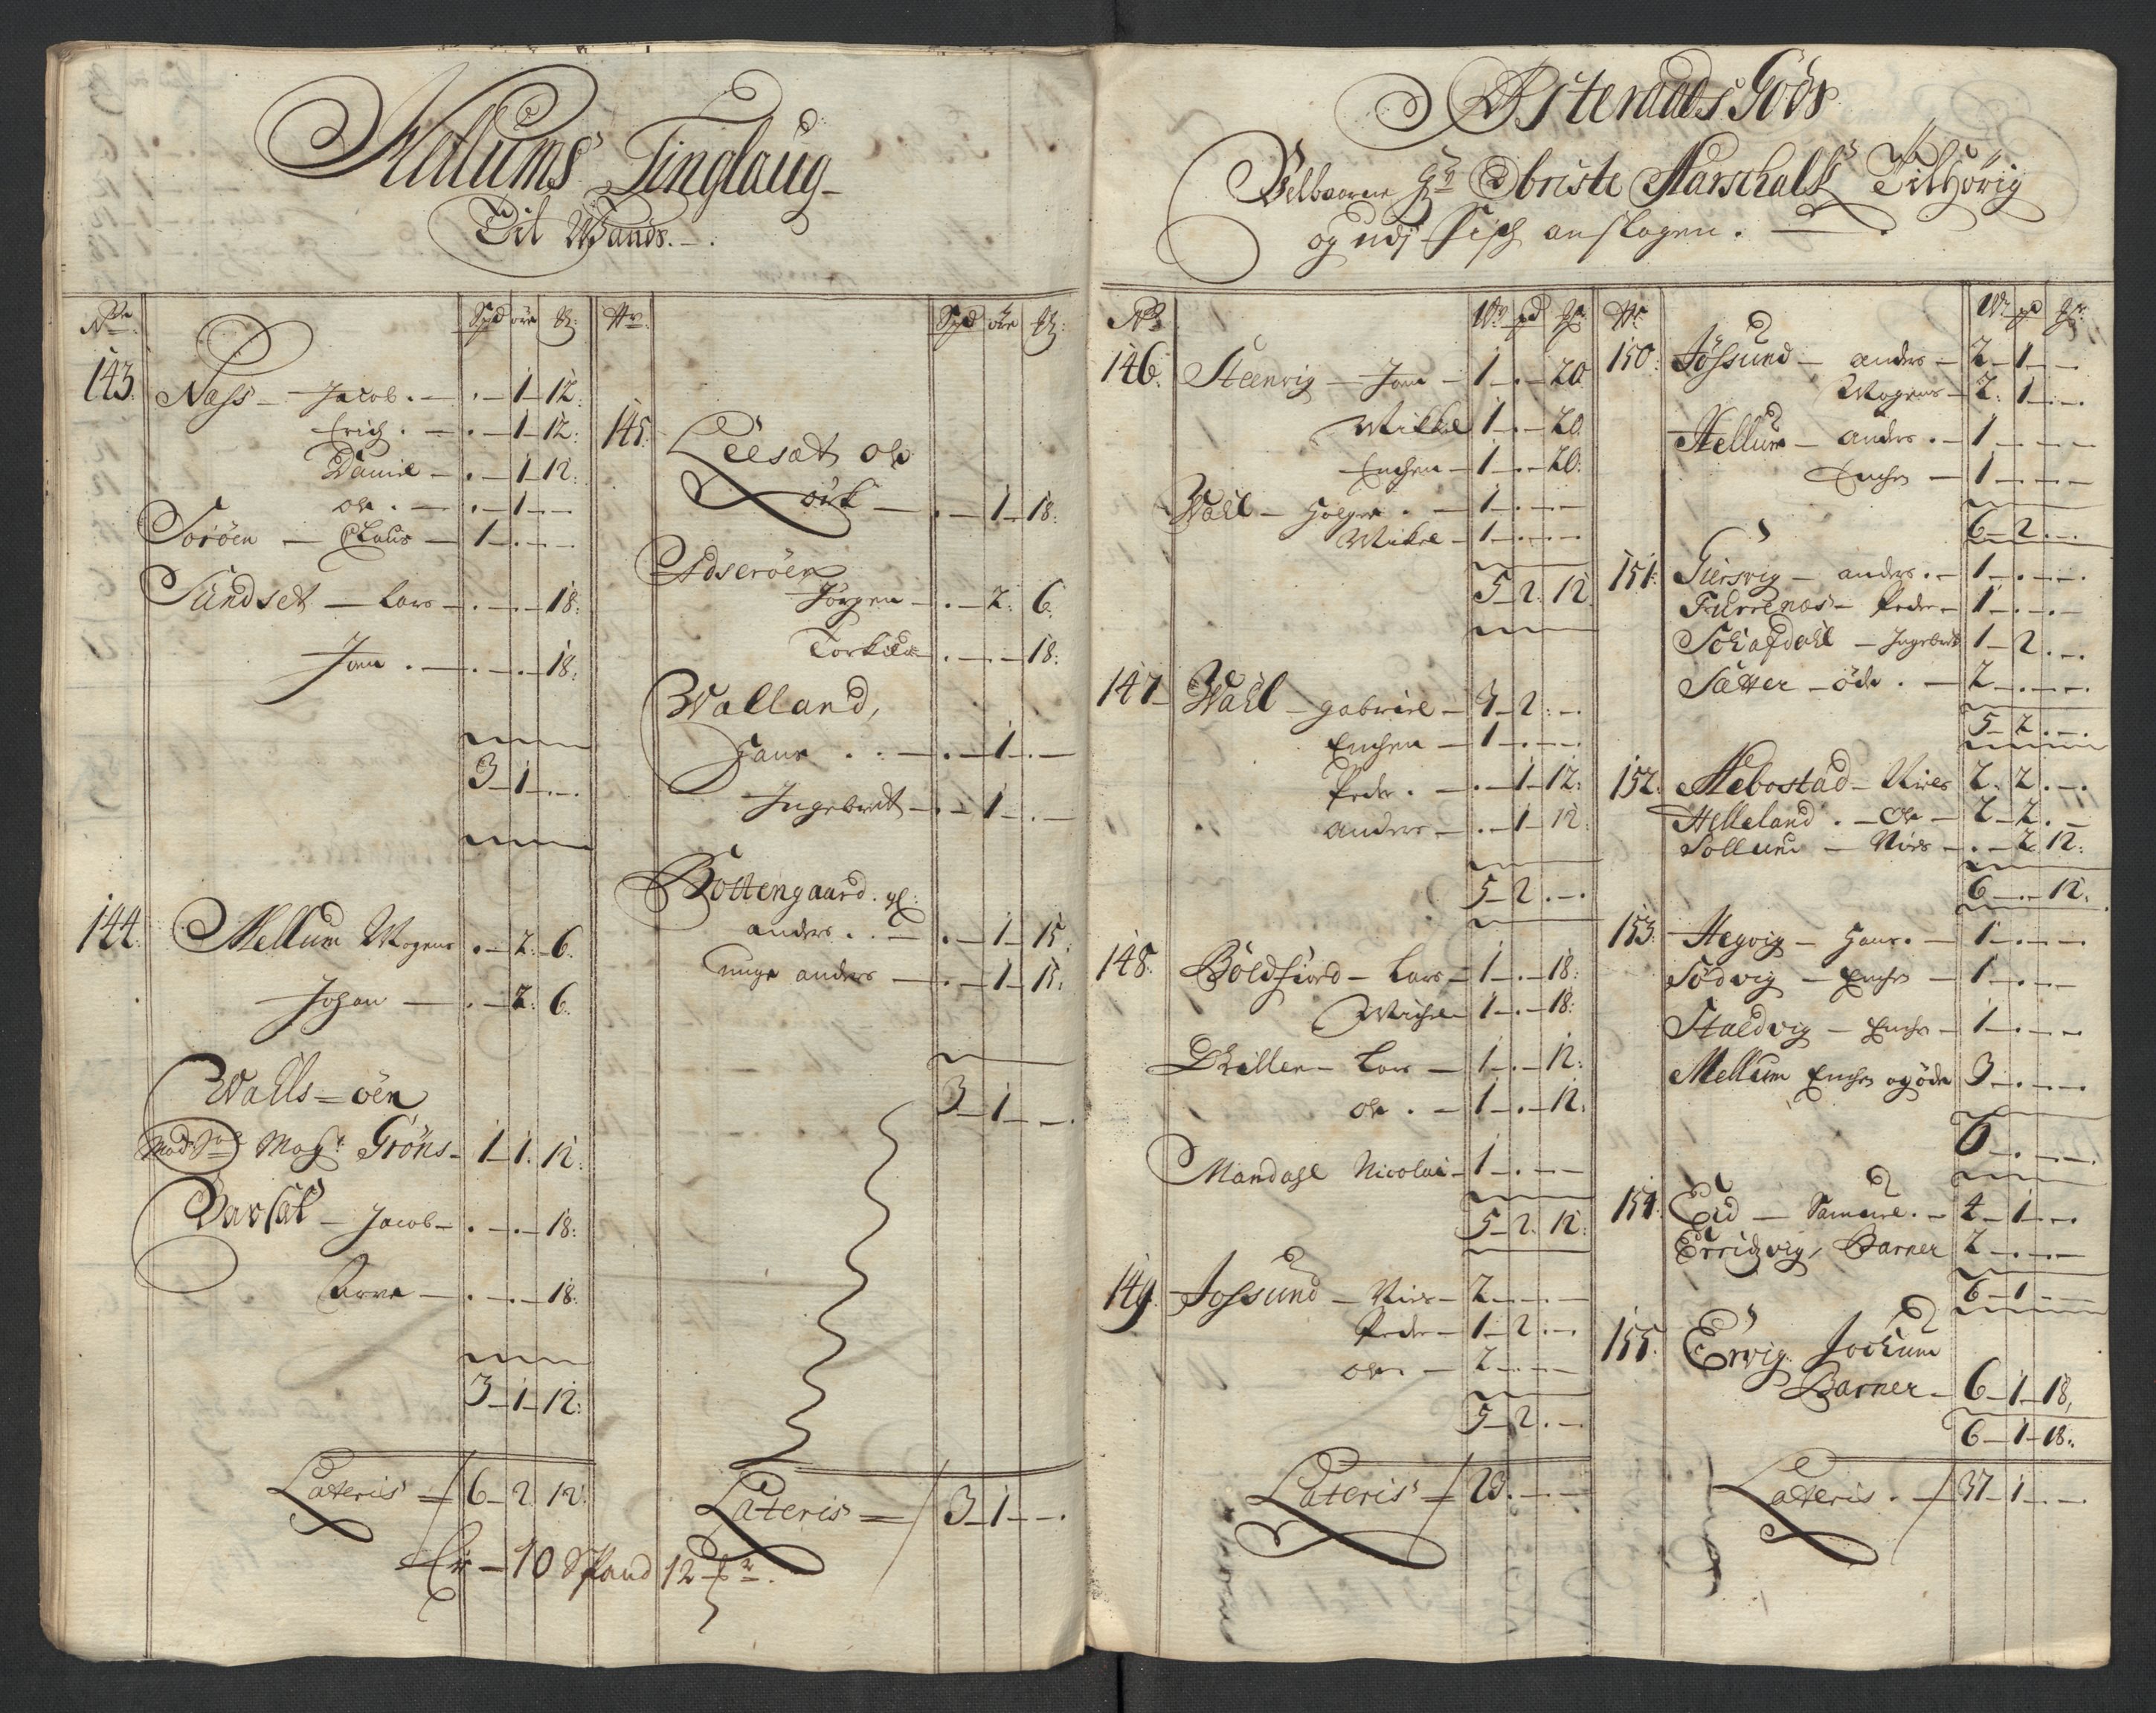 Mellums Tinglaug
Til Wands.
No Spd øre
143. Nass Jacob . 1 12
Erich . 1 12:
Daniel . 1 12:
Ole . 1
Sorøen Claus 1
Sundset Lars . . 18:
Jon . . 18:
3 1 . .
144. Mellum Mogens . 2: 6.
Johan . 2: 6.
Walls=øen
Mag: Gröns 1 1. 12.
Jacob . . 18:
Arve . . 18:
3 1 12:
Lateris 6 2 12:
Spd øre
145. Leesæt Ole
. 1 18:
Adserøen
Jörgen . 2. 6.
Torkild . . 18:
Walland,
Hans . 1 .
Ingebret . 1 .
Bottengaard. gl:
anders . . 1 15.
unge anders . 1 15:
3 1
Lateris 3 1 .
Er 10 Spand 12
Østeraads Gods
Velbaarne Hr Obriste Marschalk Tilhörig
og udj Fisch anslagen.
No W pd
146. Steenvig Jon 1 . 20
Mikkel 1 . 20
Enchen 1 . 20:
Wahl Holger 1 . .
Mikel 1 . .
5 2. 12.
147 Wahl gabriel 3 2 : .
Enchen 1 . .
Peder . 1 12:
anders . 1 12:
5 2 . .
148. Boldfiord Lars 1 . 18:
Michel 1 . 18:
Lars 1 . 12:
Ole . 1 . 12:
Mandahl Nicolai 1 . .
5 2. 12:
149. Jossund Niels 2
Peder 1 2 .
Ole 2
5 2 . .
Lateris 28.
W pd
150: Jössund anders 2 1 .
Mogens 2. 1 .
Mellum anders 1
Enchen 1
6 2 . .
151: Giersvig anders. 1 . .
Furrenæs Peder 1 . .
Schafdahl Ingebret 1 2 . .
Sætter öde . 2 . .
5 2 . .
152. Mebostad Niels 2. 2 . .
Helleland Ole 2 2 .
Sollum Niels . 2 12:
6 . 12.
153. Hegvig Hans. 1 . .
Södvig Enchen 1 . .
Staldvig Enchen 1 . .
Mellum Enchen og öde 3 . .
6 . .
154. Eid Samuel. 4 1 .
Erridsvig, Barner 2 . .
6 1
155. Ervig Jochum
Barner 6 1 18,
6 1 18:
Lateris . 37 1 .